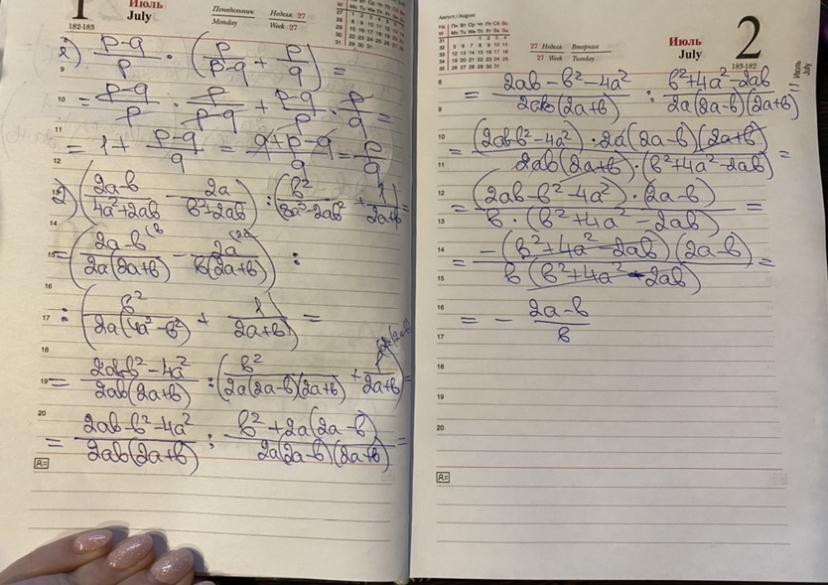 1 Июль July Понедельник Monday Неделя 27 Week 27
182-183
2) (p-q)/p · (p/(p-q) + p/q) =
= (p-q)/p · p/(p-q) + (p-q)/p · p/q =
= 1 + (p-q)/q = (q+p-q)/q = p/q
2) ((2a-b)/(4a²+2ab) - 2a/(b²+2ab)) : (b²/(8a³-2ab²) + 1/(2a+b)) =
= ((2a-b)/(2a(2a+b)) - 2a/(b(2a+b))) :
: (b²/(2a(4a²-b²)) + 1/(2a+b)) =
= (2ab-b²-4a²)/(2ab(2a+b)) : (b²/(2a(2a-b)(2a+b)) + 1/(2a+b)) =
= (2ab-b²-4a²)/(2ab(2a+b)) : (b²+2a(2a-b))/(2a(2a-b)(2a+b)) =
Август / August
27 Неделя Вторник
27 Week Tuesday
Июль July 2
183-182
Июль July
= (2ab-b²-4a²)/(2ab(2a+b)) : (b²+4a²-2ab)/(2a(2a-b)(2a+b)) =
= ((2ab-b²-4a²)·2a(2a-b)(2a+b))/(2ab(2a+b)·(b²+4a²-2ab)) =
= ((2ab-b²-4a²)·(2a-b))/(b·(b²+4a²-2ab)) =
= (-(b²+4a²-2ab)(2a-b))/(b(b²+4a²-2ab)) =
= - (2a-b)/b